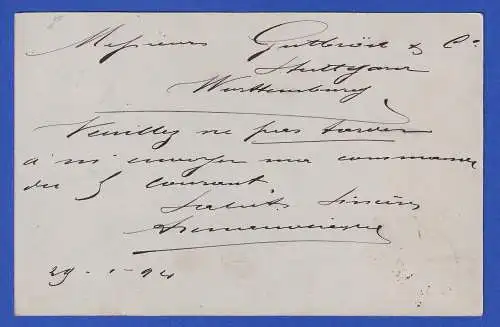 Messieurs Gutbrod & Co
Stuttgart
Württemberg
Veuillez ne pas tarder
à m'envoyer ma commande
du 5 courant.
Saluts sincères
29 - 1 - 94